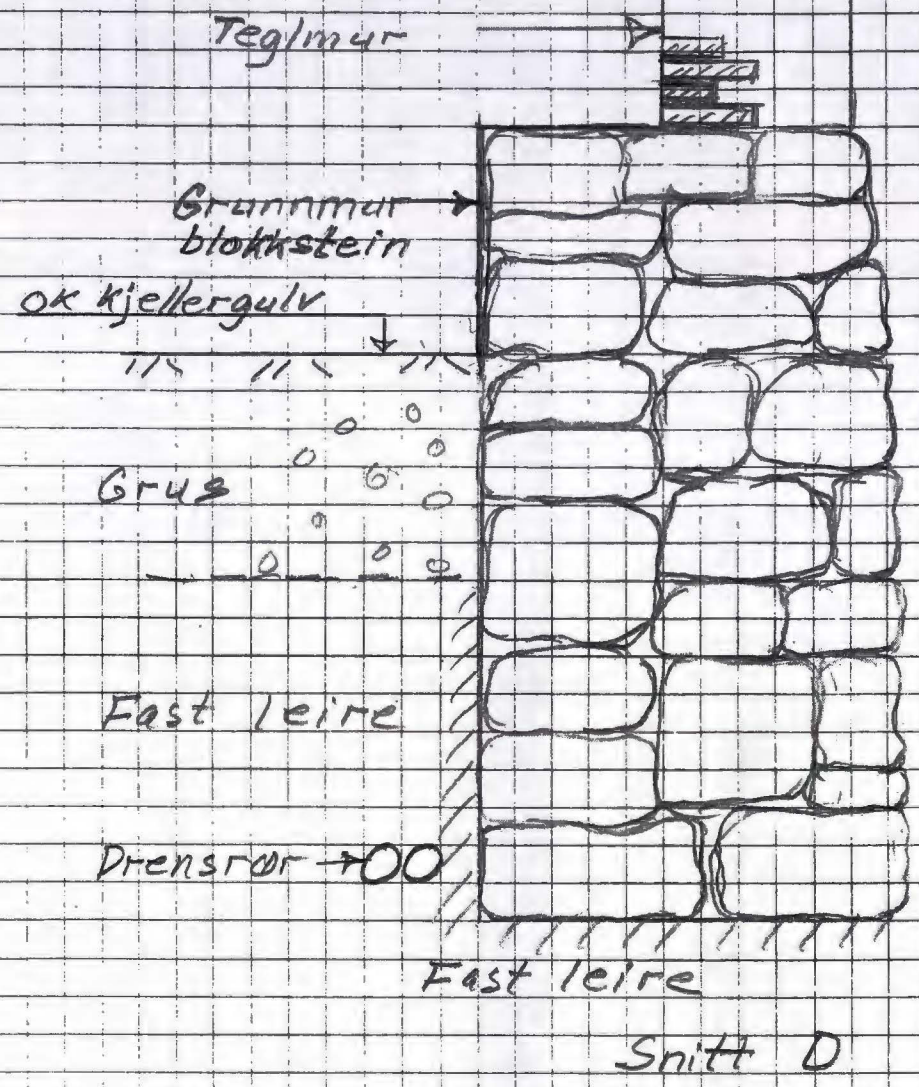 Teglmur
Grunnmur
blokkstein
OK kjellergulv
Grus
Fast leire
Drensrør
Fast leire
Snitt D